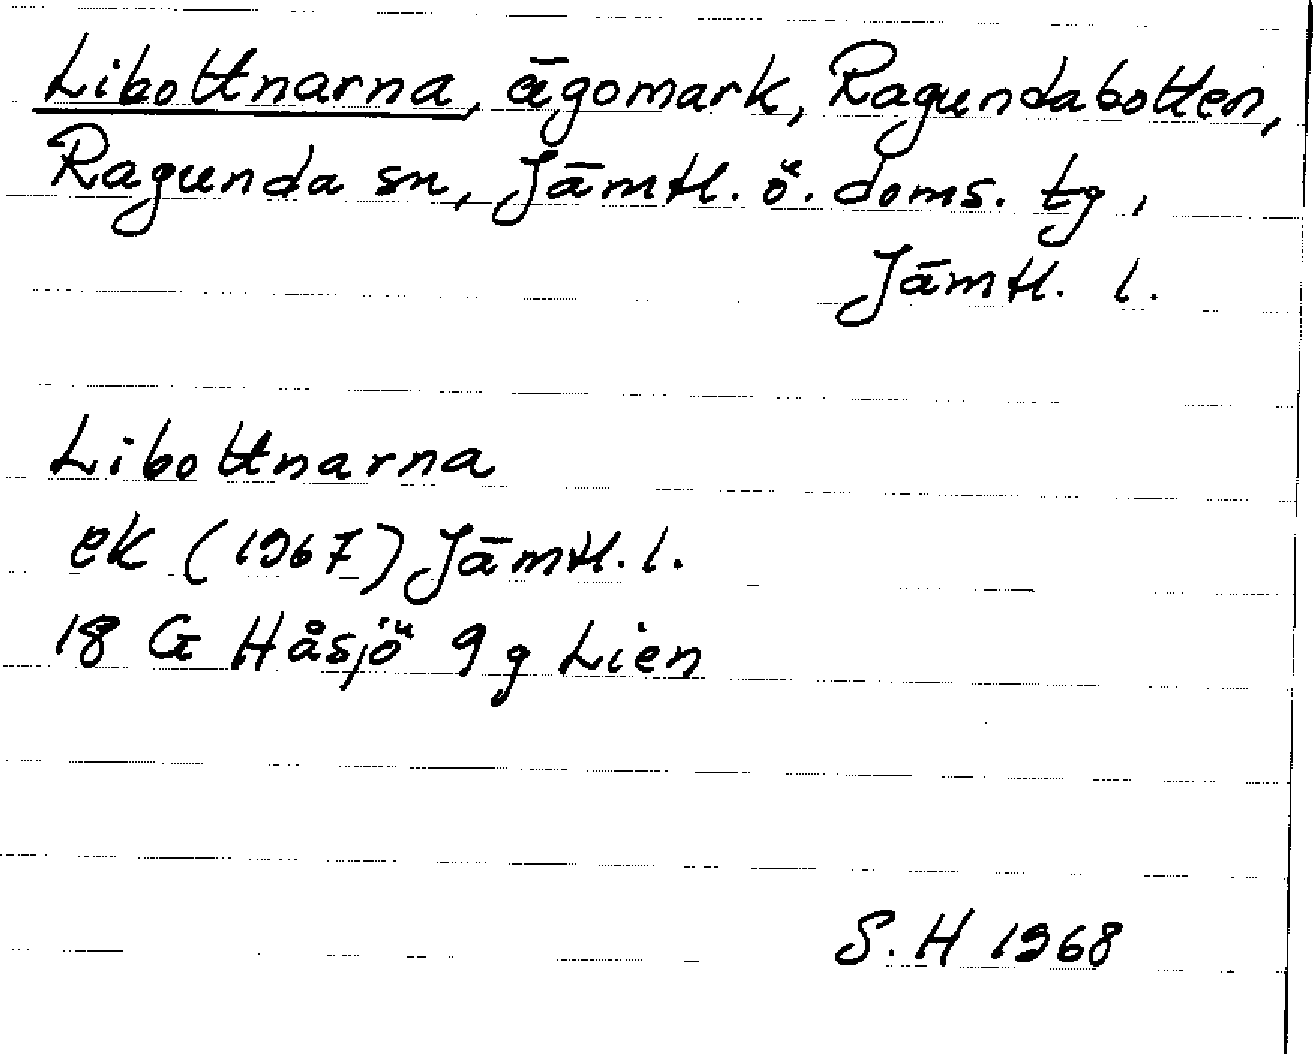 Libottnarna, ägomark, Ragundabotten,
Ragunda sn, Jämtl. ö. doms. tg,
Jämtl. l.
Libottnarna
ek (1967) Jämtl. l.
18 G Håsjö 9 g Lien
S. H 1968